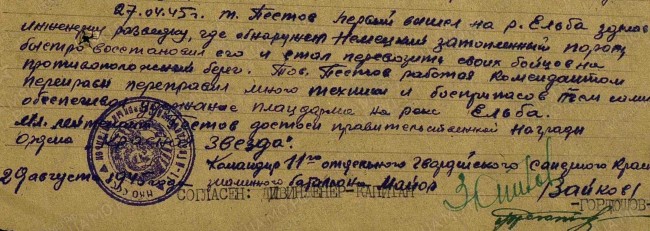 27.04.45 г. т. Пестов первый вышел на р. Ельба
инженерн разведку, где обнаружен Немецкий затопленный паром,
быстро восстановил его и стал перевозить своих бойцов на
противоположный берег. Тов. Пестов работая Комендантом
переправы переправил много техники и боеприпасов тем самим
обеспечив удержание плацдарма на реке Ельба.
Мл. лейтенант Пестов достоен правительственной Награды
Ордена Красная Звезда".
Командир 11го отдельного Гвардейского Саперного Крас
нознаменного батальона Майор Зайков
29 августа 1945 года
СОГЛАСЕН: ДИВИНЖЕНЕР-КАПИТАН -ГОРДЮШОВ-